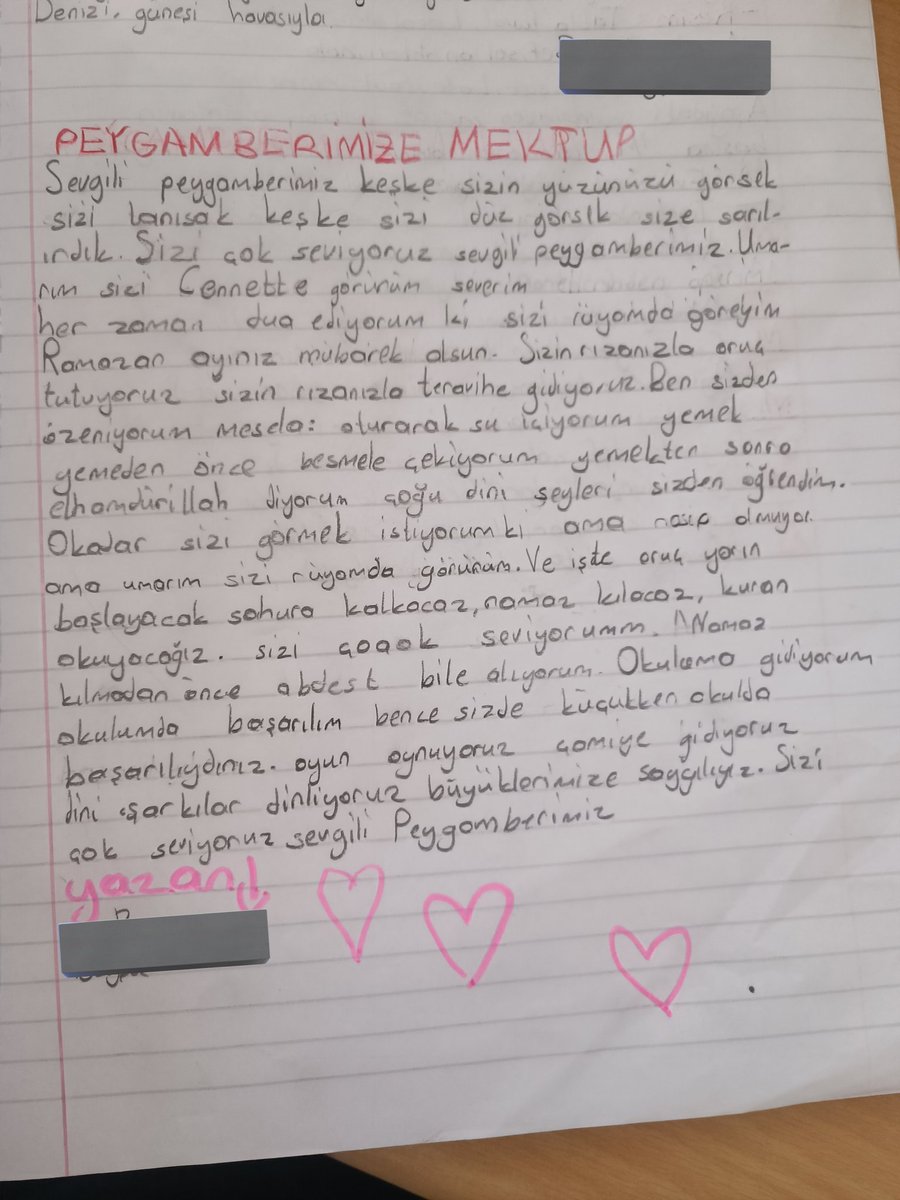 Denizi, güneşi havasıyla.
PEYGAMBERİMİZE MEKTUP
Sevgili peygamberimiz keşke sizin yüzünüzü görsek
sizi tanısak keşke sizi düz görsek size sarıl-
ırdık. Sizi çok seviyoruz sevgili peygamberimiz. Uma-
rım sizi Cennette görürüm severim
her zaman dua ediyorum ki, sizi rüyamda göreyim
Ramazan ayınız mübarek olsun. Sizin rızanızla oruç
tutuyoruz sizin rızanızla teravihe gidiyoruz. Ben sizden
özeniyorum mesela: oturarak su içiyorum yemek
yemeden önce besmele çekiyorum yemekten sonra
elhamdürillah diyorum çoğu dini şeyleri sizden öğrendim.
Okadar sizi görmek istiyorum ki ama nasip olmuyor.
ama umarım sizi rüyamda görürüm. Ve işte oruç yarın
başlayacak sahura kalkacaz, namaz kılacaz, kuran
okuyacağız. sizi çoook seviyorumm. Namaz
kılmadan önce abdest bile alıyorum. Okuluma gidiyorum
okulumda başarılım bence sizde küçükken okulda
başarılıydınız. oyun oynuyoruz camiye gidiyoruz
dini şarkılar dinliyoruz büyüklerimize saygılıyız. Sizi
çok seviyoruz sevgili Peygamberimiz
yazan